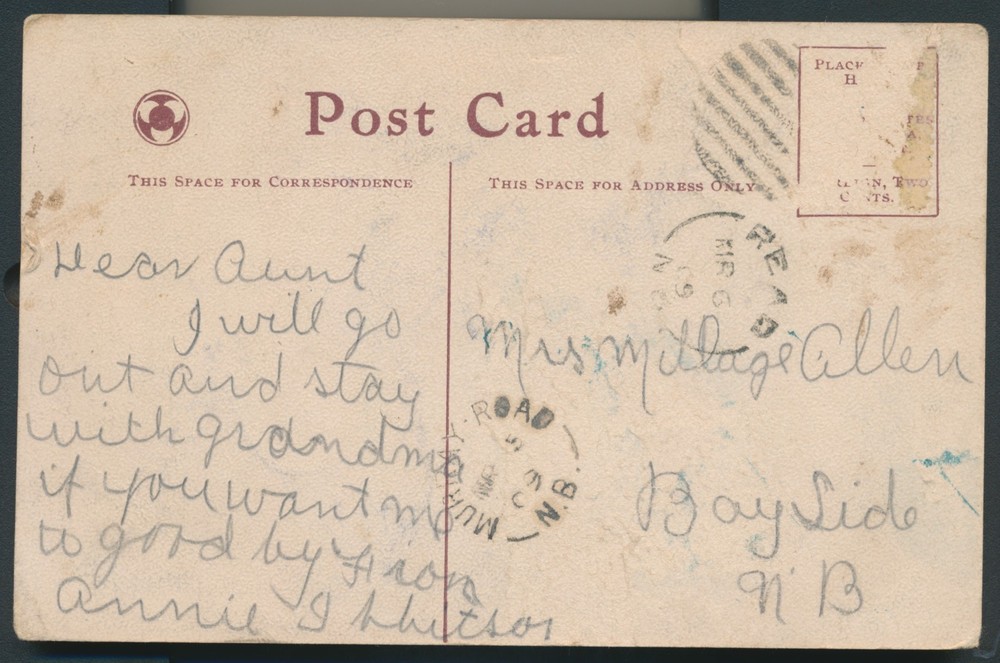 Post Card
THIS SPACE FOR CORRESPONDENCE
THIS SPACE FOR ADDRESS ONLY
PLACE
H
TWO
CENTS.
READ
MR 6
09
N B
Dear Aunt
I will go
out and stay
with grandma
if you want me
to good by From
Annie Ibbitson
Mrs Millage Allen
Bay Side
N B
MURRAY ROAD
N.B.